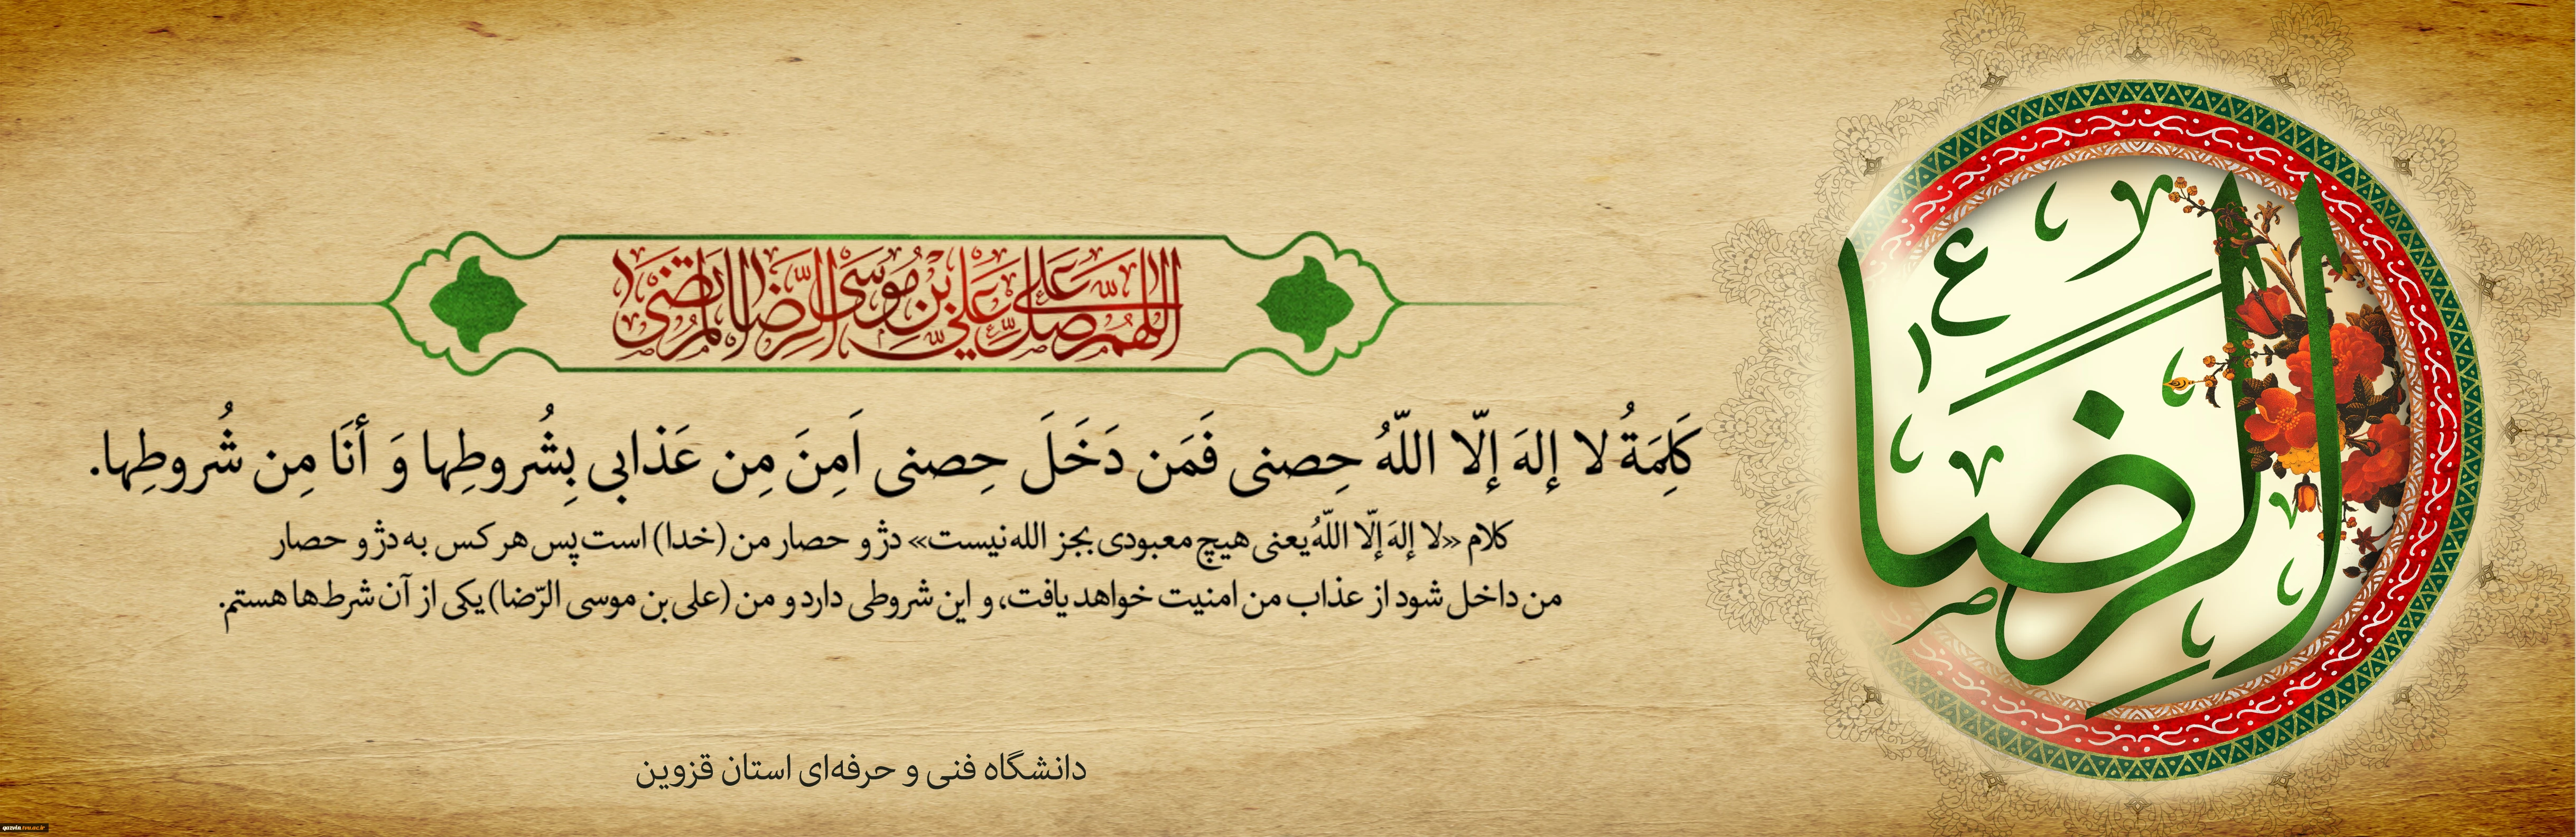 اللهم صل علی علی بن موسی الرضا المرتضی
الرضا
كَلِمَةُ لا إلهَ إلّا اللّهُ حِصنی فَمَن دَخَلَ حِصنی اَمِنَ مِن عَذابی بِشُروطِها وَ أنَا مِن شُروطِها.
کلام «لا إلهَ إلّا اللّهُ یعنی هیچ معبودی بجز الله نیست» دژ و حصار من (خدا) است پس هر کس به دژ و حصار
من داخل شود از عذاب من امنیت خواهد یافت، و این شروطی دارد و من (علی‌بن موسی الرّضا) یکی از آن شرط‌ها هستم.
دانشگاه فنی و حرفه‌ای استان قزوین
qazvin.tvu.ac.ir